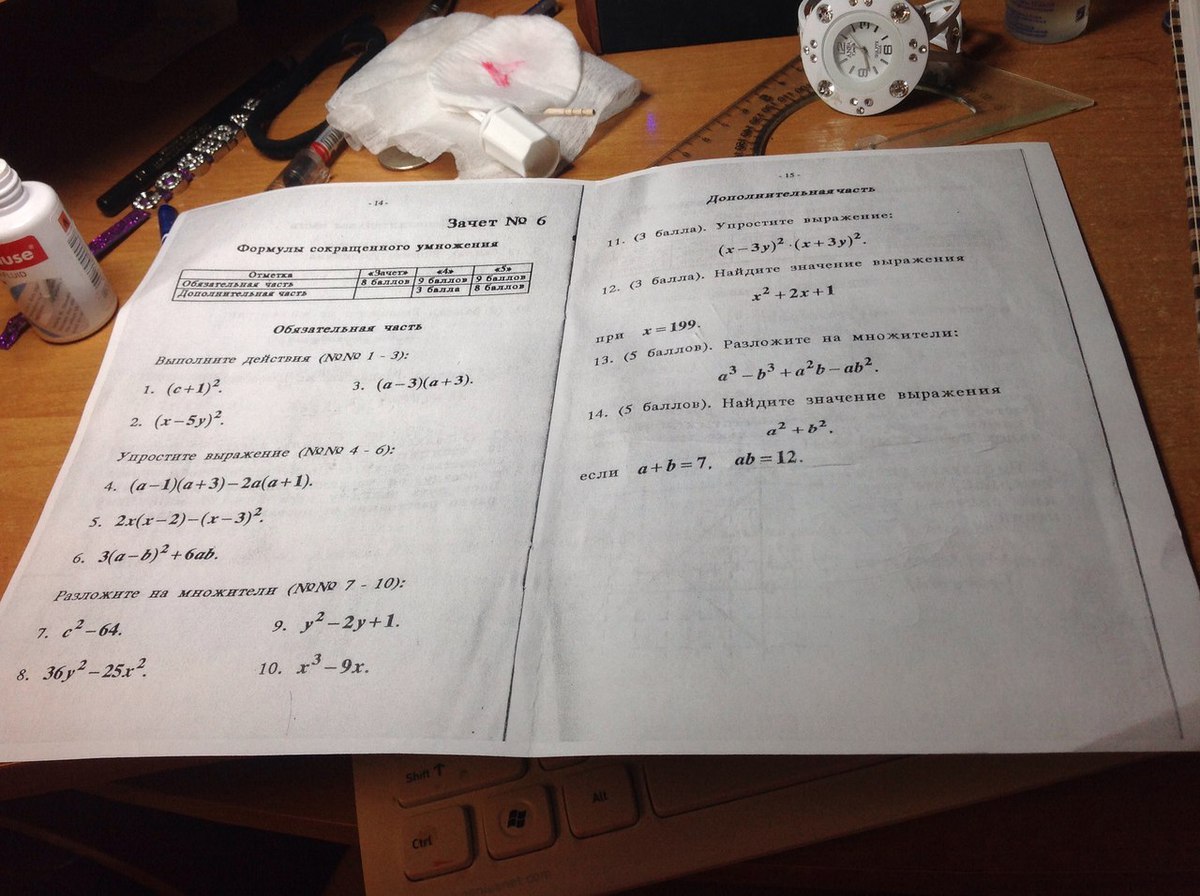 - 14 -
Зачет № 6
Формулы сокращенного умножения
Отметка «Зачет» «4» «5»
Обязательная часть 8 баллов 9 баллов 9 баллов
Дополнительная часть 3 балла 8 баллов
Обязательная часть
Выполните действия (№№ 1 - 3):
1. (c+1)².
3. (a−3)(a+3).
2. (x−5y)².
Упростите выражение (№№ 4 - 6):
4. (a−1)(a+3)−2a(a+1).
5. 2x(x−2)−(x−3)².
6. 3(a−b)²+6ab.
Разложите на множители (№№ 7 - 10):
7. c²−64.
9. y²−2y+1.
8. 36y²−25x².
10. x³−9x.
- 15 -
Дополнительная часть
11. (3 балла). Упростите выражение:
(x−3y)²·(x+3y)².
12. (3 балла). Найдите значение выражения
x²+2x+1
при x=199.
13. (5 баллов). Разложите на множители:
a³−b³+a²b−ab².
14. (5 баллов). Найдите значение выражения
a²+b².
если a+b=7, ab=12.
Shift
Ctrl
Alt